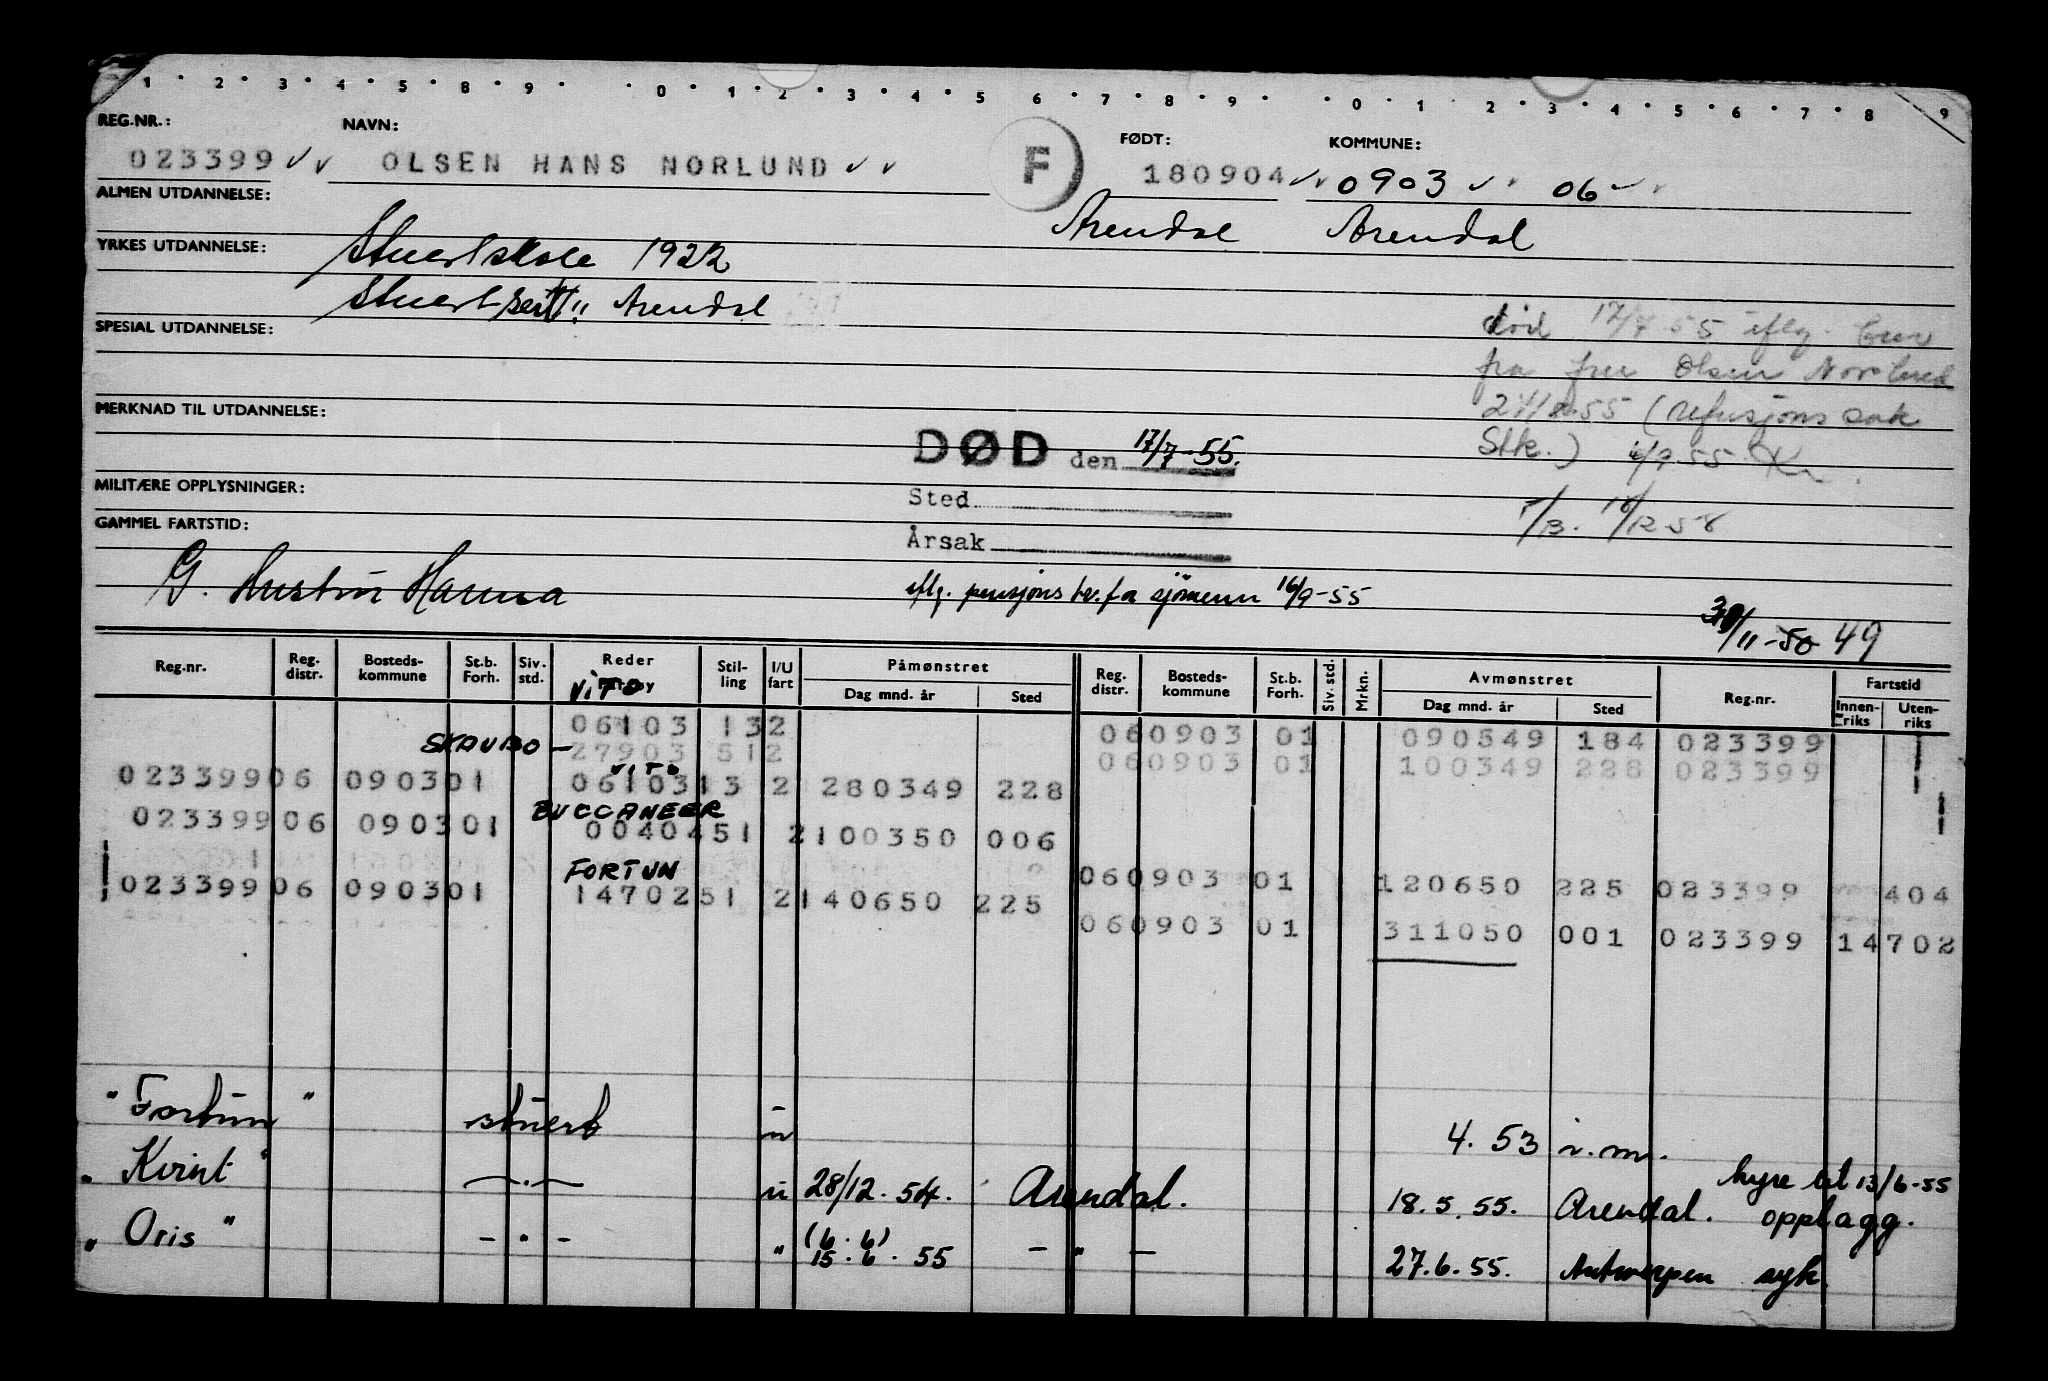 1 · 2 · 3 · 4 · 5 · 8 · 9 · · 0 · 1 · 2 · 3 · 4 · 5 6 · 7 · 8 · 9 · · 0 · 1 2 · 3 · 4 · 5 · 6 · 7 · 8 9
REG.NR.: NAVN: FØDT: KOMMUNE:
023399 OLSEN HANS NORLUND F 180904 0903 06
ALMEN UTDANNELSE: Arendal Arendal
YRKES UTDANNELSE: Stuertskole 1922
Stuertsert!! Arendal
SPESIAL UTDANNELSE:
død 17/7 55 iflg.
fra fru Olsen Norlund
MERKNAD TIL UTDANNELSE:
27/8-55 (refusjons sak
DØD den 17/7-55. Stk.) 6/9 55
MILITÆRE OPPLYSNINGER: Sted
GAMMEL FARTSTID: Årsak
G. Hustru
iflg. pensjons tr. for sjömenn 16/9-55
30/11-50 49
Reg.nr. Reg. distr. Bosteds-kommune St.b. Forh. Siv. std. Reder Stil-ling I/U fart Påmønstret Dag mnd. år Sted Reg. distr. Bosteds-kommune St.b. Forh. Siv. std. Mrkn. Avmønstret Dag mnd. år Sted Reg.nr. Fartstid Innen-riks Uten-riks
VITO
06103 13 2 06 0903 01 090549 184 023399
SKAUBO — 27903 51 2 06 0903 01 100349 228 023399
VITO
023399 06 0903 01 06103 13 2 280349 228
BUCCANEER
023399 06 0903 01 00404 51 2 100350 006
FORTUN
06 0903 01 120650 225 023399 404
023399 06 0903 01 14702 51 2 140650 225
06 0903 01 311050 001 023399 14702
"Fortun" stuert u 4. 53
"Kvint" — · — u 28/12. 54. Arendal. 18. 5. 55. Arendal. hyre til 13/6-55
opplagg.
"Oris" — " — " (6. 6)
15. 6. 55 — " — 27. 6. 55. Antwerpen syk.